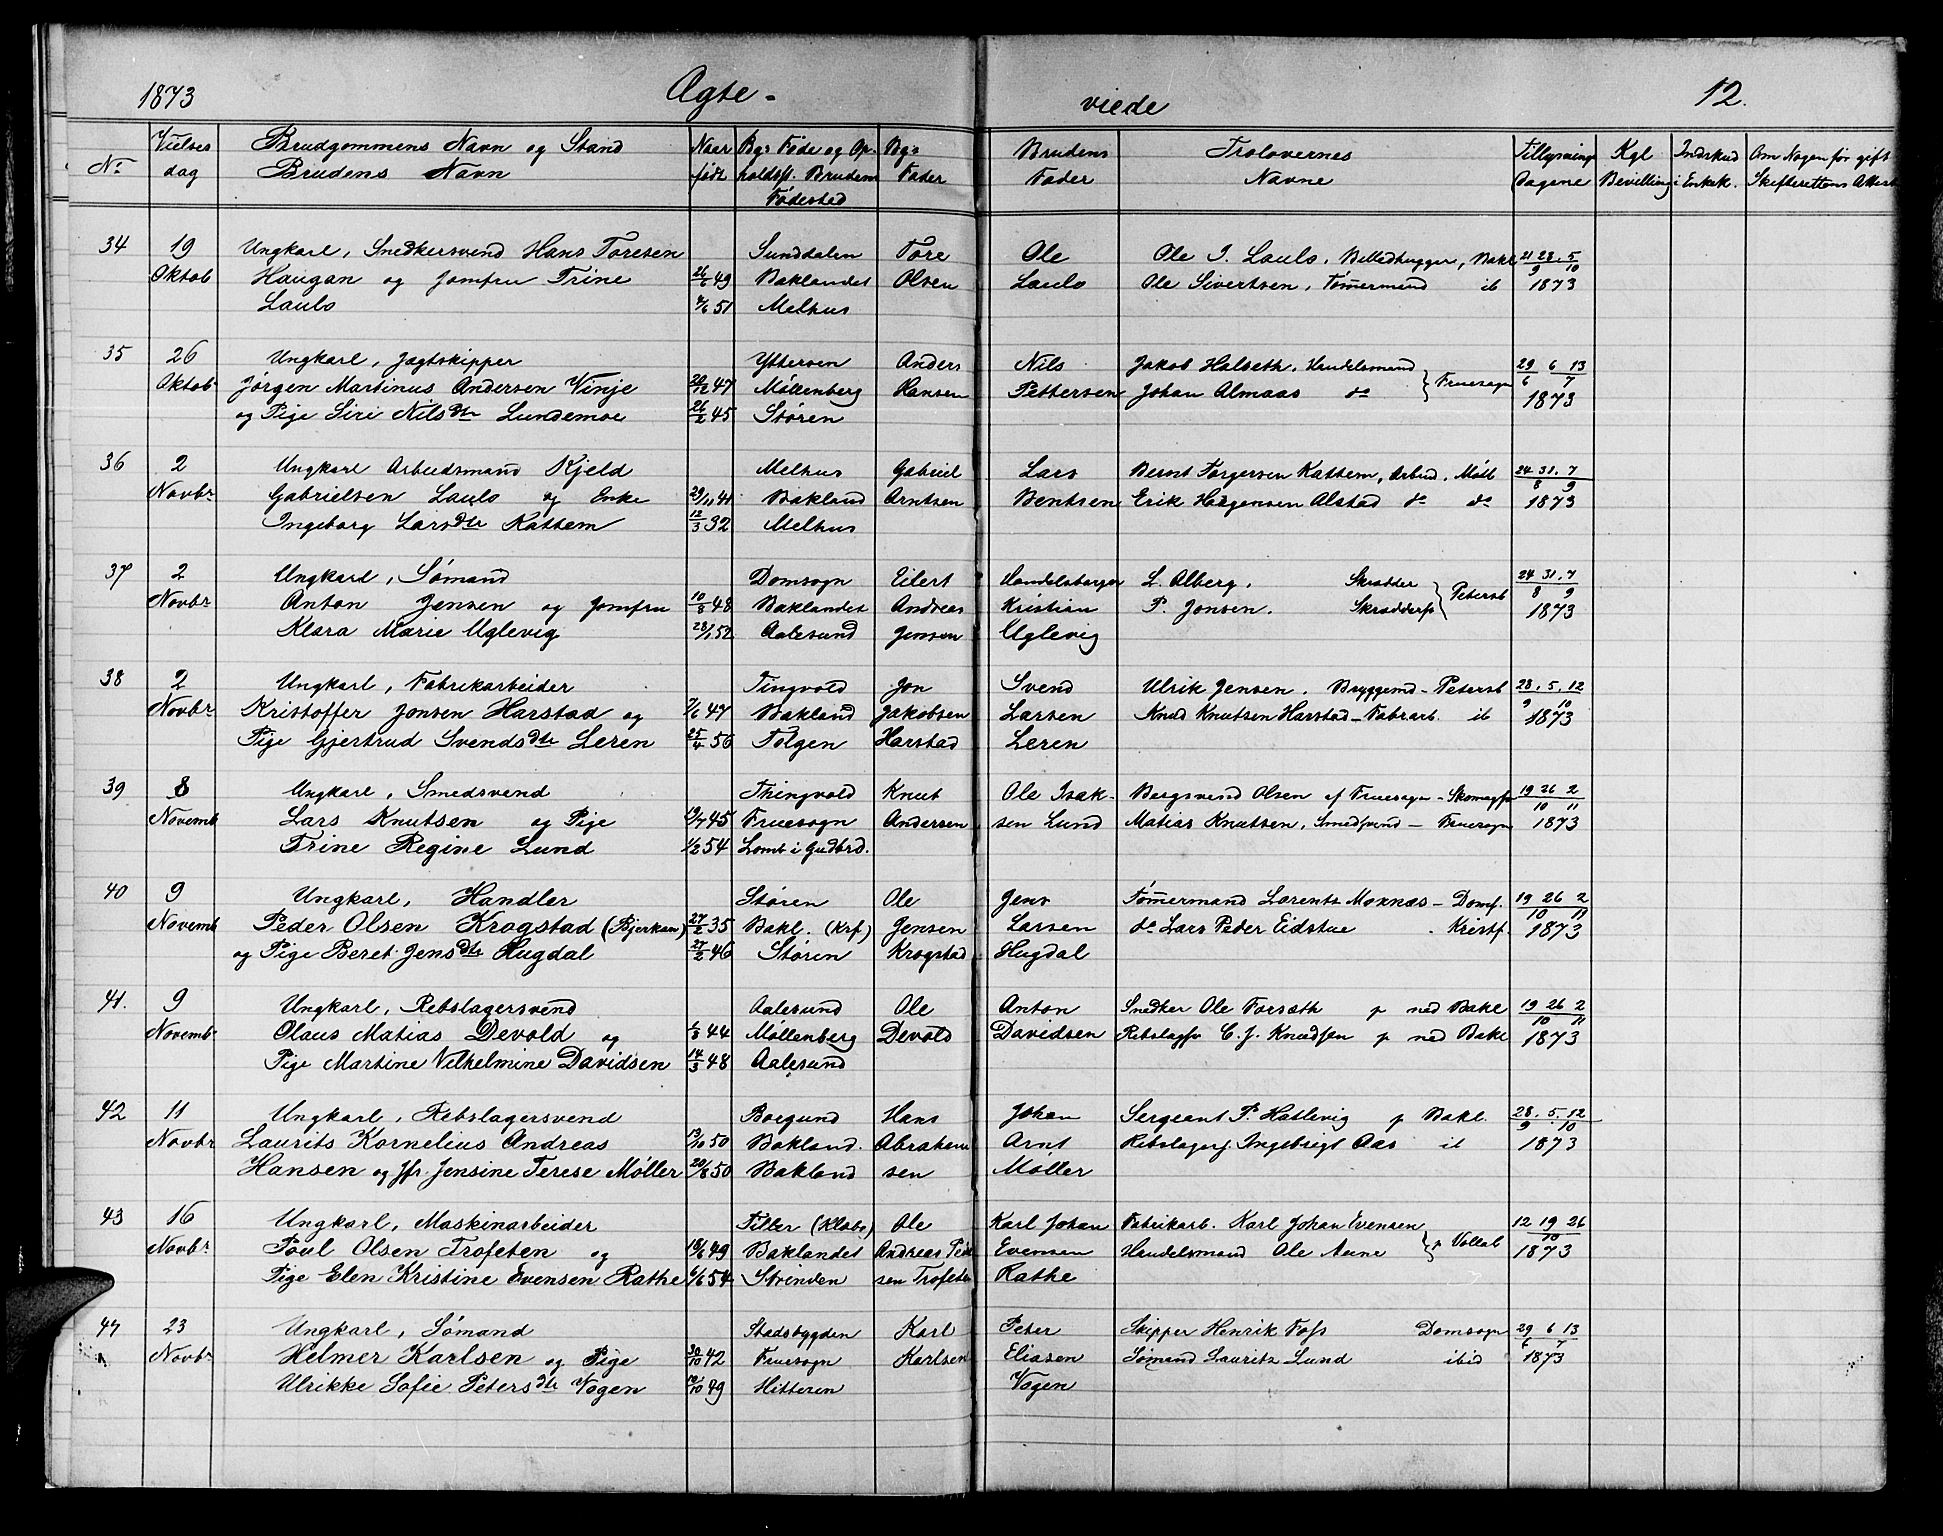 1873 Ægte- viede 12.
No Vielses dag Brudgommens Navn og Stand Brudens Navn Naar født Bg: Føde og Opholdsst. Brudens Fødested Bg: Fader Brudens Fader Trolovernes Navne Tillysnings Dagene Kgl Bevilling Indskud i Enkek. Om Nogen før gift Skifterettens Attest
34 19 Ungkarl, Snedkersvend Hans Toresen Sunddalen Tore Ole Ole I. Laulo, Billedhugger, Bakl 21 28. 5
Oktob Haugan og Jomfru Trine 26/6 49 Baklandet Olsen Laulo Ole Sivertsen, Tømermand ib 9 10 1873
Laulo 51 Melhus
35 26 Ungkarl, Jagtskipper Ytterøen Anders Nils Jakob Halseth, Handelsmand 29 6 13
Oktob Jørgen Martinus Andersen Vinje 20/12 47 Møllenberg Hansen Pettersen Johan Almaas do } Fruesogn 6 7
og Pige Siri Nilsdtr Lundemoe 26/2 45 Støren 1873
36 2 Ungkarl Arbeidsmand Kjeld Melhus Gabriel Lars Bernt Torgersen Kattem, Arbeid. Møll 24 31. 7
Novbr Gabrielsen Laulo og Enke 29/11 41 Bakland Arntsen Bentsen Erik Haagensen Alstad do do 8 9 1873
Ingeborg Larsdtr Kattem 12/3 32 Melhus
37 2 Ungkarl, Sømand Domsogn Eilert Handelsborger L. Alberg, Skrædder 24 31. 7
Novbr Anton Jensen og Jomfru 10/3 48 Baklandet Andreas Kristian P. Jonsen, } Petersb 8 9
Klara Marie Uglevig 28/1 52 Aalesund Jensen Uglevig 1873
38 2 Ungkarl, Fabrikarbeider Tingvold Jon Svend Ulrik Jensen, Bryggemd - Petersb 28. 5. 12
Novbr Kristoffer Jonsen Harstad og 7/6 47 Bakland Jakobsen Larsen Knud Knutsen Harstad - Fabrarb. ib 9 10 1873
Pige Gjertrud Svendsdtr Leren 25/4 56 Tolgen Harstad Leren
39 8 Ungkarl, Smedsvend Thingvold Knut Ole Isak- Bergsvend Olsen af Fruesogn - 19 26 2
Novemb Lars Knutsen og Pige 19/7 45 Fruesogn Andersen sen Lund Matias Knutsen, Smedsvend - Fruesogn 10 11 1873
Trine Regine Lund 1/2 54 Lomb i Gudbrd.
40 9 Ungkarl, Handler Støren Ole Jens Tømermand Lorents Moxnæs - Doms. 19 26 2
Novemb Peder Olsen Krogstad (Bjerkan) 27/2 35 Bakl. (Krf) Jensen Larsen do Lars Peder Eidstue . Kristf. 10 11 1873
og Pige Beret Jensdtr Hugdal 27/2 46 Støren Krogstad Hugdal
41. 9 Ungkarl, Rebslagersvend Aalesund Ole Anton Snedker Ole Forsæth p ned Bakl 19 26 2
Novemb Olaus Matias Devold og 44 Møllenberg Devold Davidsen Rebslagsv C. J. Knudssen p ned Bakl 10 11 1873
Pige Martine Vilhelmine Davidsen 14/3 48 Aalesund
42 11 Ungkarl, Rebslagersvend Borgund Hans Johan Sergeant P. Hatlevig p Bakl. 28. 5. 12
Novbr Laurits Kornelius Andreas 50 Bakland. Abraham Arnt Rebslagers Ingebrigt Aas ib 9 10 1873
Hansen og Jfr. Jensine Terese Møller 20/8 50 Bakland sen Møller
43 16 Ungkarl, Maskinarbeider Tiller (Klæbo) Ole Karl Johan Fabrikarb. Karl Johan Evensen 12 19 26
Novbr Povl Olsen Trofeten og 18/6 49 Baklandet Andreas Peder Evensen Handelsmand Ole Aune } p Vollab 10 1873
Pige Elen Kristine Evensen Rathe 6/6 54 Strinden sen Trofeten Rathe
44 23 Ungkarl, Sømand Stadsbygden Karl Peter Skipper Henrik Foss Domsogn 29 6 13
Novbr Helmer Karlsen og Pige 30/10 42 Fruesogn Karlsen Eliasen Sømand Lauritz Lund ibid 6 7 1873
Ulrikke Sofie Petersdtr Vogen 49 Hitteren Vogen